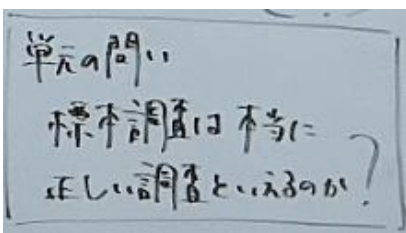 単元の問い
標本調査は本当に
正しい調査といえるのか?